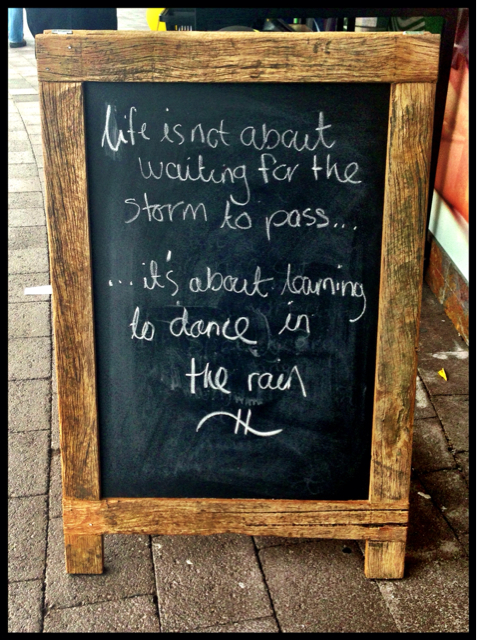 Life is not about
waiting for the
storm to pass...
...it's about learning
to dance in
the rain